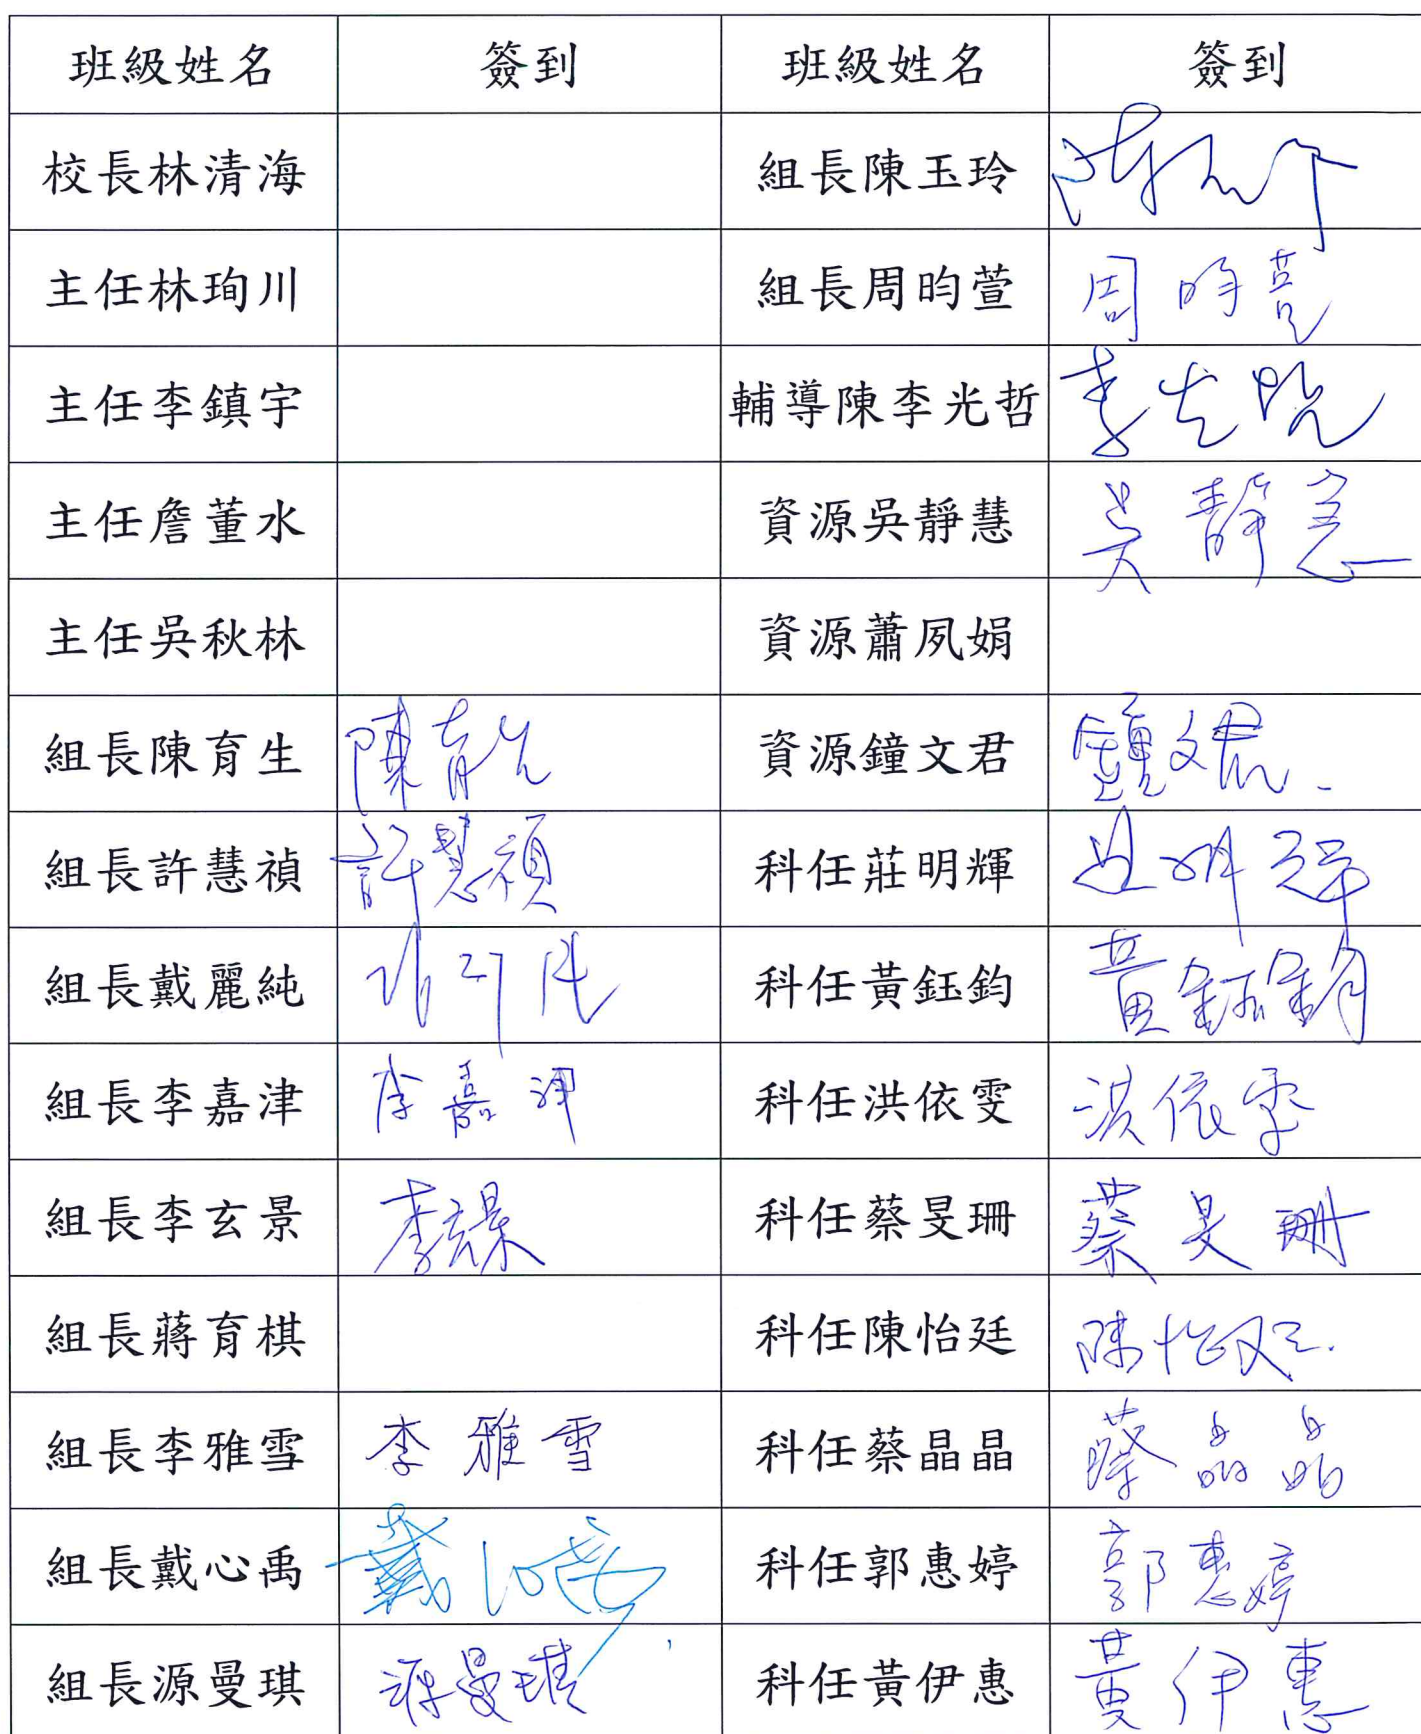 班級姓名 簽到 班級姓名 簽到
校長林清海 組長陳玉玲
主任林珣川 組長周昀萱 周昀萱
主任李鎮宇 輔導陳李光哲
主任詹董水 資源吳靜慧 吳靜慧
主任吳秋林 資源蕭夙娟
組長陳育生 陳育生 資源鐘文君 鐘文君
組長許慧禎 許慧禎 科任莊明輝
組長戴麗純 科任黃鈺鈞 黃鈺鈞
組長李嘉津 李嘉津 科任洪依雯 洪依雯
組長李玄景 李玄景 科任蔡旻珊 蔡旻珊
組長蔣育棋 科任陳怡廷 陳怡廷
組長李雅雪 李雅雪 科任蔡晶晶 蔡晶晶
組長戴心禹 科任郭惠婷 郭惠婷
組長源曼琪 源曼琪 科任黃伊惠 黃伊惠